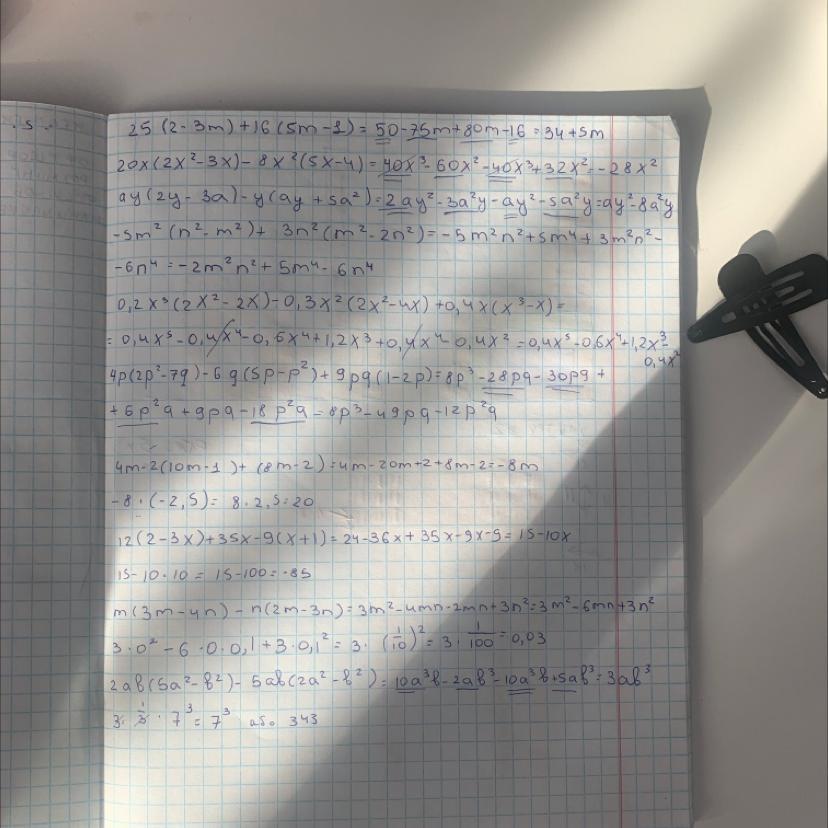 . s .
25 (2 - 3m) + 16 (5m - 1) = 50 - 75m + 80m - 16 = 34 + 5m
20x(2x² - 3x) - 8x²(5x - 4) = 40x³ - 60x² - 40x³ + 32x² = - 28x²
ay(2y - 3a) - y(ay + 5a²) = 2ay² - 3a²y - ay² - 5a²y = ay² - 8a²y
-5m²(n² - m²) + 3n²(m² - 2n²) = -5m²n² + 5m⁴ + 3m²n² -
-6n⁴ = -2m²n² + 5m⁴ - 6n⁴
0,2x³(2x² - 2x) - 0,3x²(2x² - 4x) + 0,4x(x³ - x) =
= 0,4x⁵ - 0,4x⁴ - 0,6x⁴ + 1,2x³ + 0,4x⁴ - 0,4x² = 0,4x⁵ - 0,6x⁴ + 1,2x³ -
0,4x²
4p(2p² - 7q) - 6q(5p - p²) + 9pq(1 - 2p) = 8p³ - 28pq - 30pq +
+ 6p²q + 9pq - 18p²q = 8p³ - 49pq - 12p²q
4m - 2(10m - 1) + (8m - 2) = 4m - 20m + 2 + 8m - 2 = -8m
-8 · (-2,5) = 8 · 2,5 = 20
12(2 - 3x) + 35x - 9(x + 1) = 24 - 36x + 35x - 9x - 9 = 15 - 10x
15 - 10 · 10 = 15 - 100 = -85
m(3m - 4n) - n(2m - 3n) = 3m² - 4mn - 2mn + 3n² = 3m² - 6mn + 3n²
3 · 0² - 6 · 0 · 0,1 + 3 · 0,1² = 3 · (1/10)² = 3 · 1/100 = 0,03
2ab(5a² - b²) - 5ab(2a² - b²) = 10a³b - 2ab³ - 10a³b + 5ab³ = 3ab³
3 · 1/3 · 7³ = 7³ або 343